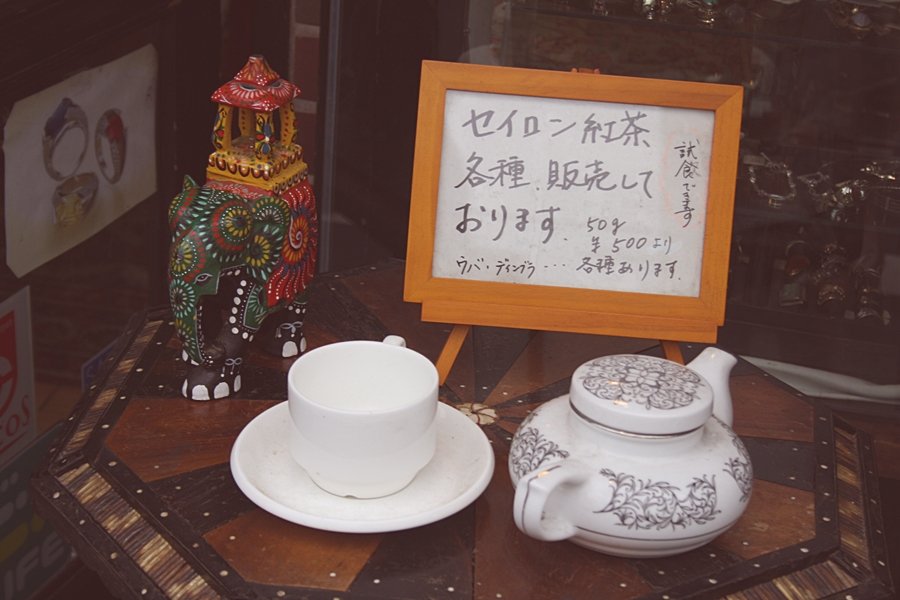 セイロン紅茶
各種販売して
おります.
50g
¥500より
ウバ・ディンブラ・・・各種あります.
試飲できます
COS
LIFE